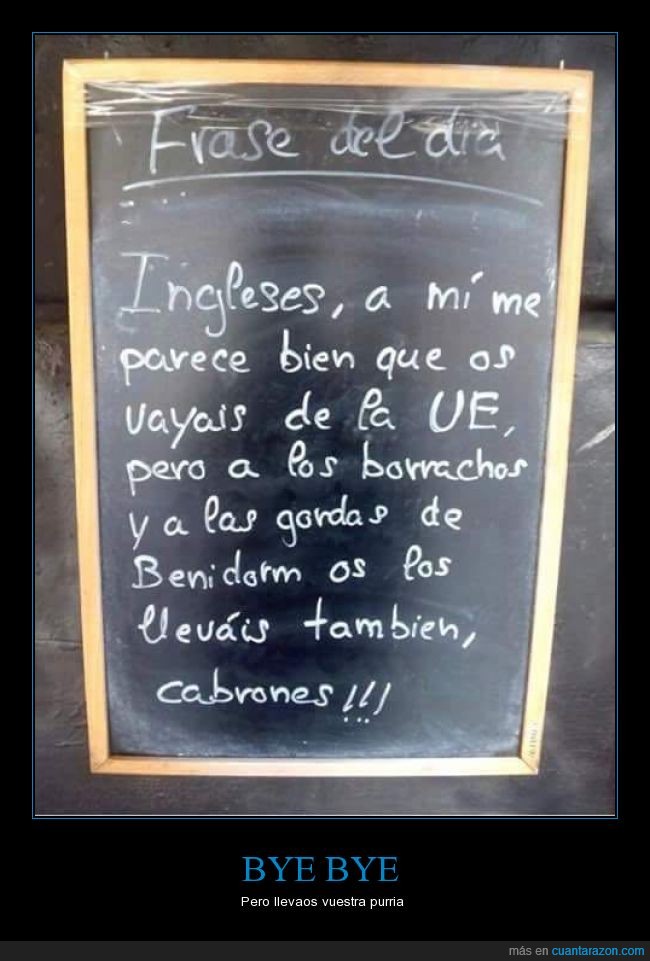 Frase del día
Ingleses, a mí me
parece bien que os
vayais de la UE,
pero a los borrachos
y a las gordas de
Benidorm os los
lleváis tambien,
cabrones!!!
BYE BYE
Pero llevaos vuestra purria
más en cuantarazon.com